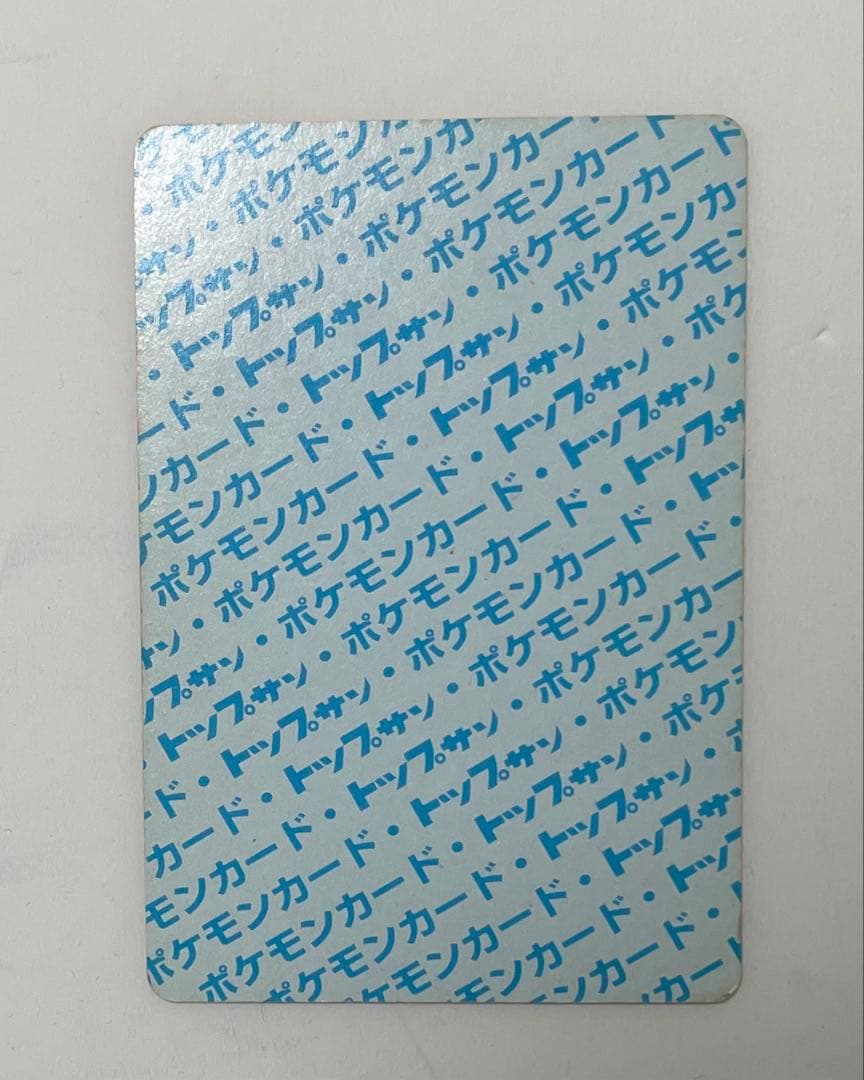 ・ポケモン
サン・ポケモンカ
ップサン・ポケモンカ
・トップサン・ポケモンカー
ード・トップサン・ポケモンカード
ンカード・トップサン・ポケモンカード
ケモンカード・トップサン・ポケモンカー
ポケモンカード・トップサン・ポケモン
・ポケモンカード・トップサン・ポケ
ン・ポケモンカード・トップサン・
ップサン・ポケモンカード・トップサ
トップサン・ポケモンカード・トッ
ド・トップサン・ポケモンカード・
カード・トップサン・ポケモンカー
モンカード・トップサン・ポケモン
ポケモンカード・トップサン・ポケ
ポケモンカード・トップサン・
ポケモンカード・トップサン
ケモンカード・トップ
モンカード・
ンカード
カー